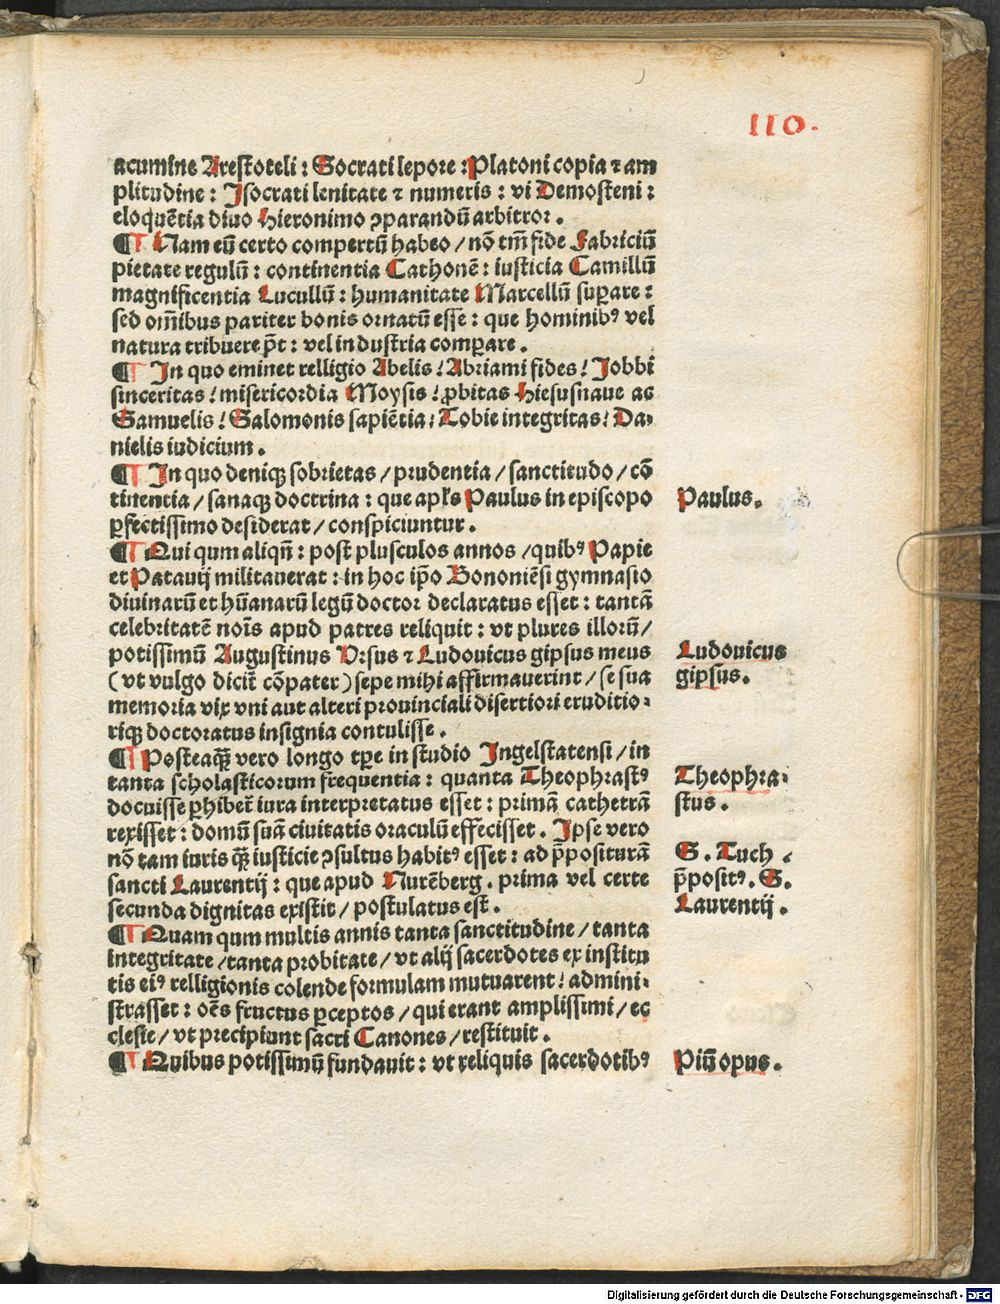 110.
acumine Arestoteli : Socrati lepore : Platoni copia ⁊ am
plitudine : Isocrati lenitate ⁊ numeris : vi Demosteni :
eloquētia diuo Hieronimo ꝯparandū arbitror .
¶ Nam eū certo compertū habeo / nō tm̄ fide Fabriciū
pietate regulū : continentia Cathonē : iusticia Camillū
magnificentia Lucullū : humanitate Marcellū suꝑare :
sed om̄ibus pariter bonis ornatū esse : que hominibꝰ vel
natura tribuere pn̄t : vel industria comparare .
¶ In quo eminet relligio Abelis / Abriami fides / Jobbi
sinceritas / misericordia Moysis / ꝓbitas Hiesusnaue ac
Samuelis / Salomonis sapiētia / Tobie integritas / Da-
nielis iudicium .
¶ In quo deniqꝫ sobrietas / prudentia / sanctitudo / cō
tinentia / sanaqꝫ doctrina : que apl's Paulus in episcopo
ꝑfectissimo desiderat / conspiciuntur .
Paulus .
¶ Qui qum aliqn̄ : post plusculos annos / quibꝰ Papie
et Patauij militauerat : in hoc ip̄o Bononiēsi gymnasio
diuinarū et hūanarū legū doctor declaratus esset : tantā
celebritatē nōis apud patres reliquit : vt plures illorū /
potissimū Augustinus Vrsus ⁊ Ludouicus gipsus meus
(vt vulgo dicit̄ cōpater) sepe mihi affirmauerint / se sua
memoria vix vni aut alteri prouinciali disertiori eruditio-
riqꝫ doctoratus insignia contulisse .
Ludouicus
gipsus .
¶ Posteaqꝫ̄ vero longo tꝑe in studio Ingelstatensi / in
tanta scholasticorum frequentia : quanta Theophrastꝰ
docuisse ꝑhibet̄ iura interpretatus esset : primā cathetrā
rexisset : domū suā ciuitatis oraculū effecisset . Ipse vero
nō tam iuris qꝫ̄ iusticie ꝯsultus habitꝰ esset : ad p̄posituraā
sancti Laurentij : que apud Nurēberg . prima vel certe
secunda dignitas existit / postulatus est .
Theophra-
stus .
S . Tuch .
p̄positꝰ . S .
Laurentij .
¶ Quam qum multis annis tanta sanctitudine / tanta
integritate / tanta probitate / vt alij sacerdotes ex institu
tis eiꝰ relligionis colende formulam mutuarent / admini-
strasset : oēs fructus ꝑceptos / qui erant amplissimi / ec
clesie / vt precipiunt sacri Canones / restituit .
¶ Quibus potissimū fundauit : vt reliquis sacerdotibꝰ
Piū opus .
Digitalisierung gefördert durch die Deutsche Forschungsgemeinschaft - DFG